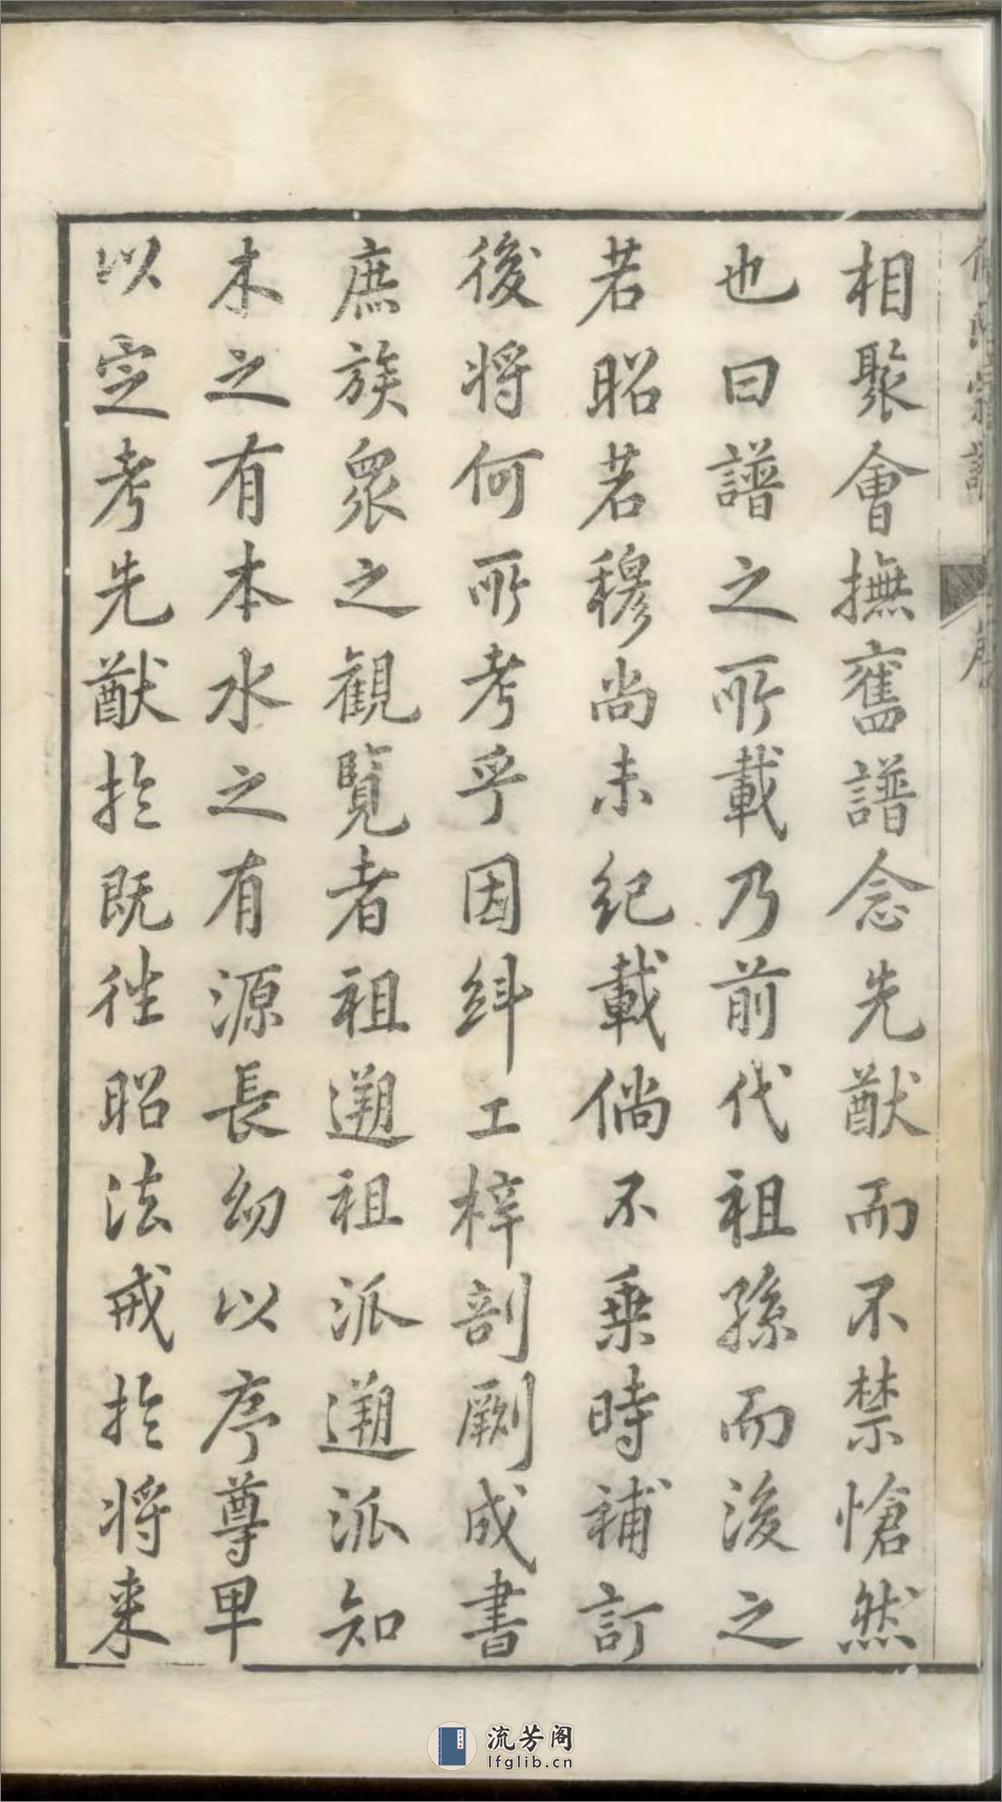 相聚會撫舊譜念先猷而不禁愴然
也曰譜之所載乃前代祖孫而後之
若昭若穆尚未紀載倘不乗時補訂
後将何所考乎因鸠工梓剖劂成書
庶族衆之觀覽者祖遡祖派遡派知
木之有本水之有源長幼以序尊卑
以定考先猷扵既徃昭法戒扵将来
流芳阁
lfglib.cn